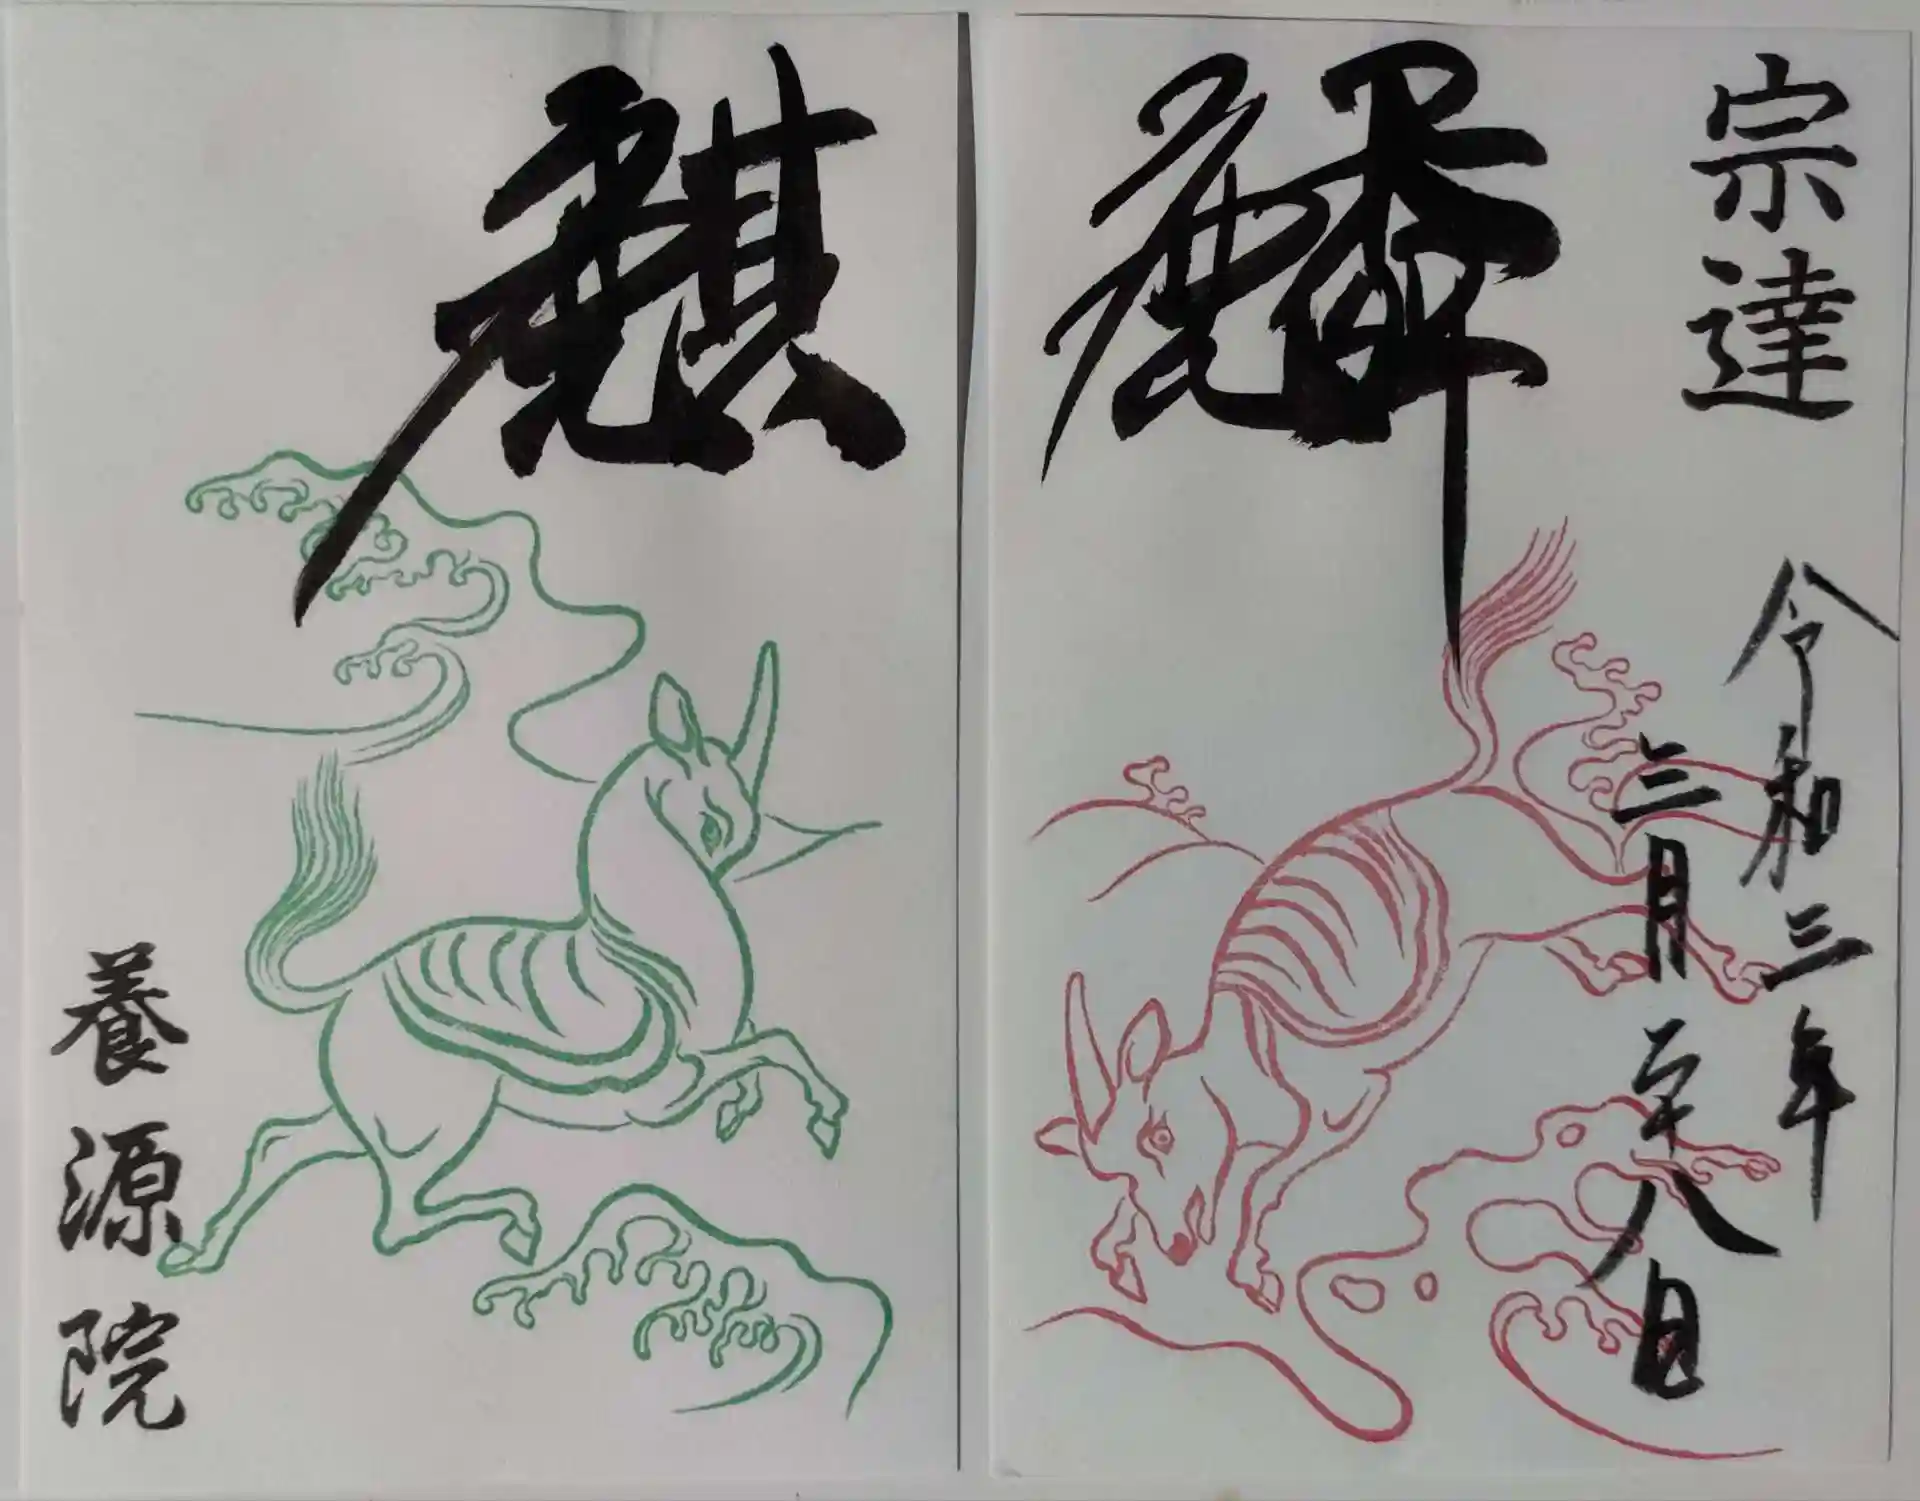 麒
麟
宗達
令和三年
三月二十八日
養源院